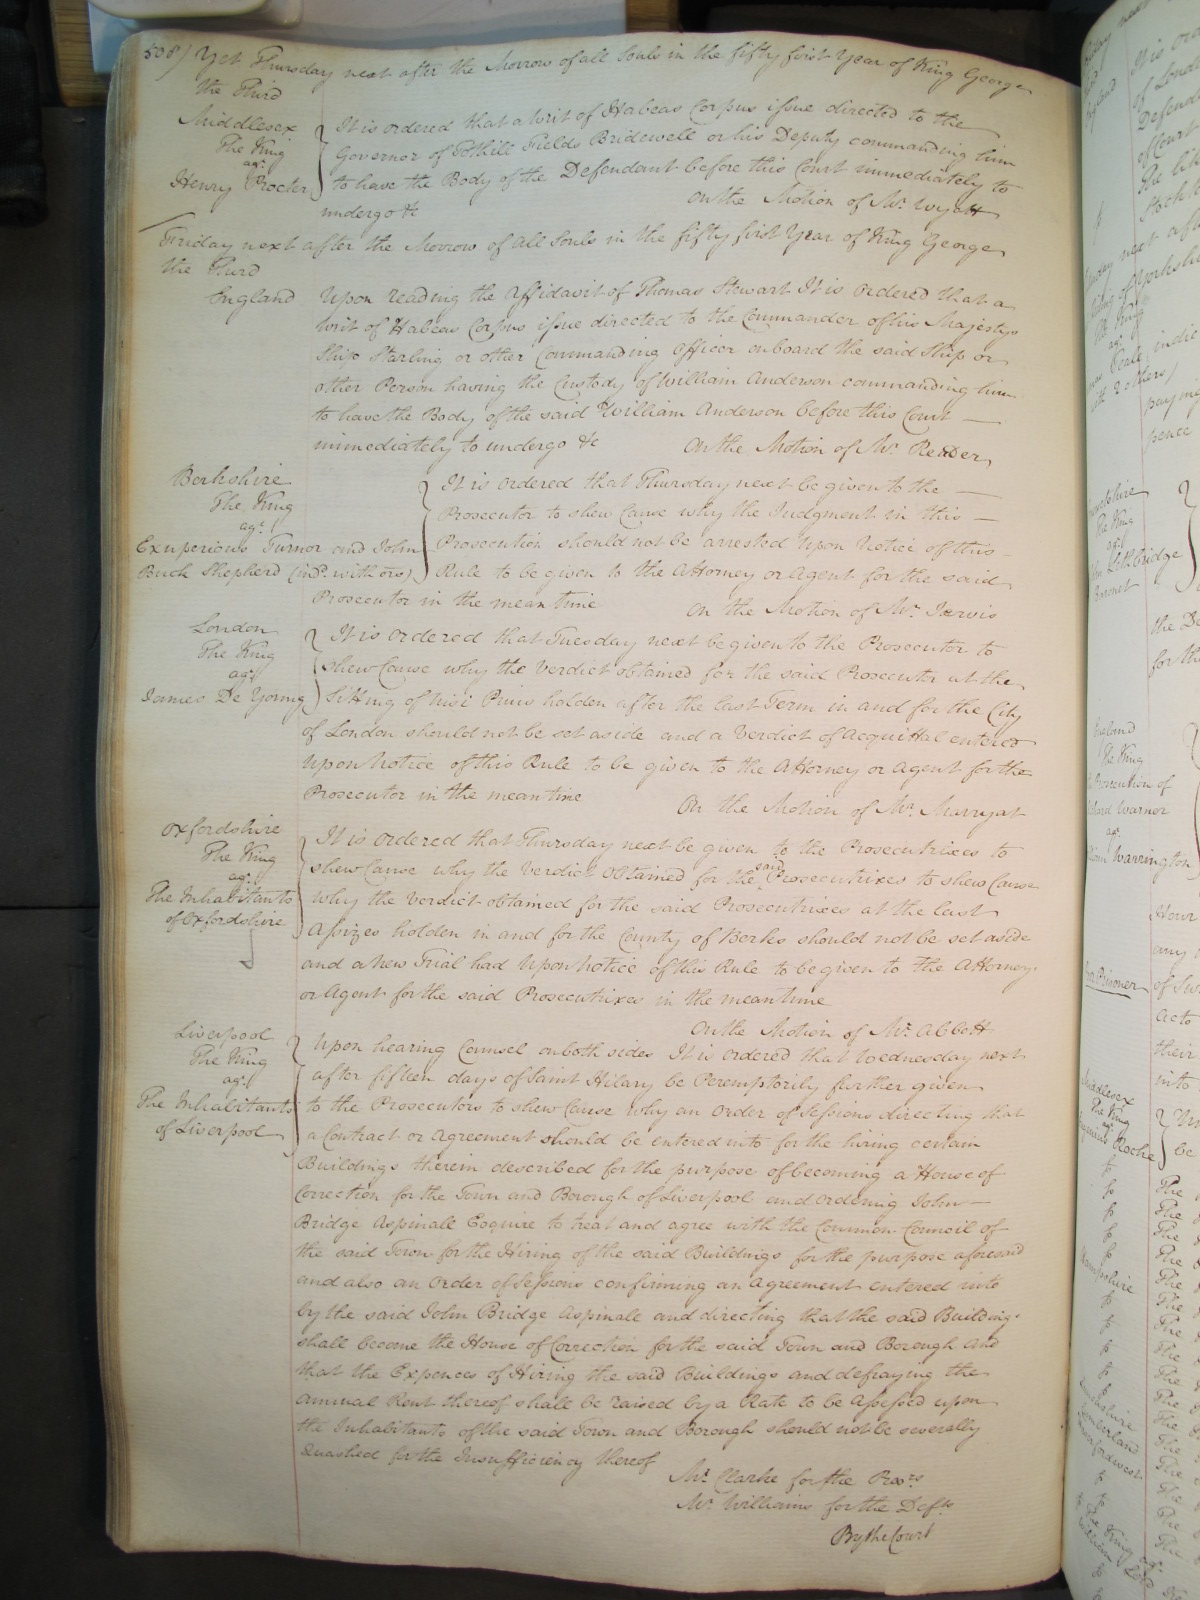 508) Yet Thursday next after the Morrow of all Souls in the fifty first Year of King George
the Third
Middlesex
The King
agt
Henry Procter
It is ordered that a Writ of Habeas Corpus issue directed to the
Governor of Tothill Fields Bridewell or his Deputy commanding him
to have the Body of the Defendant before this Court immediately to
undergo &c
On the Motion of Mr. Wyatt
Friday next after the Morrow of all Souls in the fifty first Year of King George
the Third
England
Upon reading the Affidavit of Thomas Stewart It is ordered that a
Writ of Habeas Corpus issue directed to the Commander of his Majestys
Ship Starling or other Commanding Officer on board the said Ship or
other Person having the Custody of William Anderson commanding him
to have the Body of the said William Anderson before this Court
immediately to undergo &c
On the Motion of Mr. Reader
Berkshire
The King
agt
Exuperious Turnor and John
Buck Shepherd (indd. with ors)
It is ordered that Thursday next be given to the
Prosecutor to shew Cause why the Judgment in this
Prosecution should not be arrested Upon Notice of this
Rule to be given to the Attorney or Agent for the said
Prosecutor in the mean time
On the Motion of Mr. Jervis
London
The King
agt
James De Yong
It is ordered that Tuesday next be given to the Prosecutor to
shew Cause why the Verdict obtained for the said Prosecutor at the
Sitting of Nisi Prius holden after the last Term in and for the City
of London should not be set aside and a Verdict of Acquittal entered
Upon Notice of this Rule to be given to the Attorney or Agent for the
Prosecutor in the mean time
On the Motion of Mr. Marryat
Oxfordshire
The King
agt
The Inhabitants
of Oxfordshire
It is ordered that Thursday next be given to the Prosecutrixes to
shew Cause why the Verdict obtained for the said Prosecutrixes to shew Cause
why the Verdict obtained for the said Prosecutrixes at the last
Assizes holden in and for the County of Berks should not be set aside
and a New Trial had Upon Notice of this Rule to be given to the Attorney
or Agent for the said Prosecutrixes in the mean time
On the Motion of Mr. Abbott
Liverpool
The King
agt
The Inhabitants
of Liverpool
Upon hearing Counsel on both sides It is ordered that Wednesday next
after fifteen days of Saint Hilary be Peremptorily further given
to the Prosecutors to shew Cause why an Order of Sessions directing that
a Contract or Agreement should be entered into for the hiring certain
Buildings therein described for the purpose of becoming a House of
Correction for the Town and Borough of Liverpool and ordering John
Bridge Aspinall Esquire to treat and agree with the Common Council of
the said Town for the Hiring of the said Buildings for the purpose aforesaid
and also an Order of Sessions confirming an Agreement entered into
by the said John Bridge Aspinall and directing that the said Buildings
shall become the House of Correction for the said Town and Borough and
that the Expences of Hiring the said Buildings and defraying the
annual Rent thereof shall be raised by a Rate to be Assessed upon
the Inhabitants of the said Town and Borough should not be severally
Quashed for the Insufficiency thereof
Mr. Clarke for the Prors
Mr. Williams for the Defts
By the Court